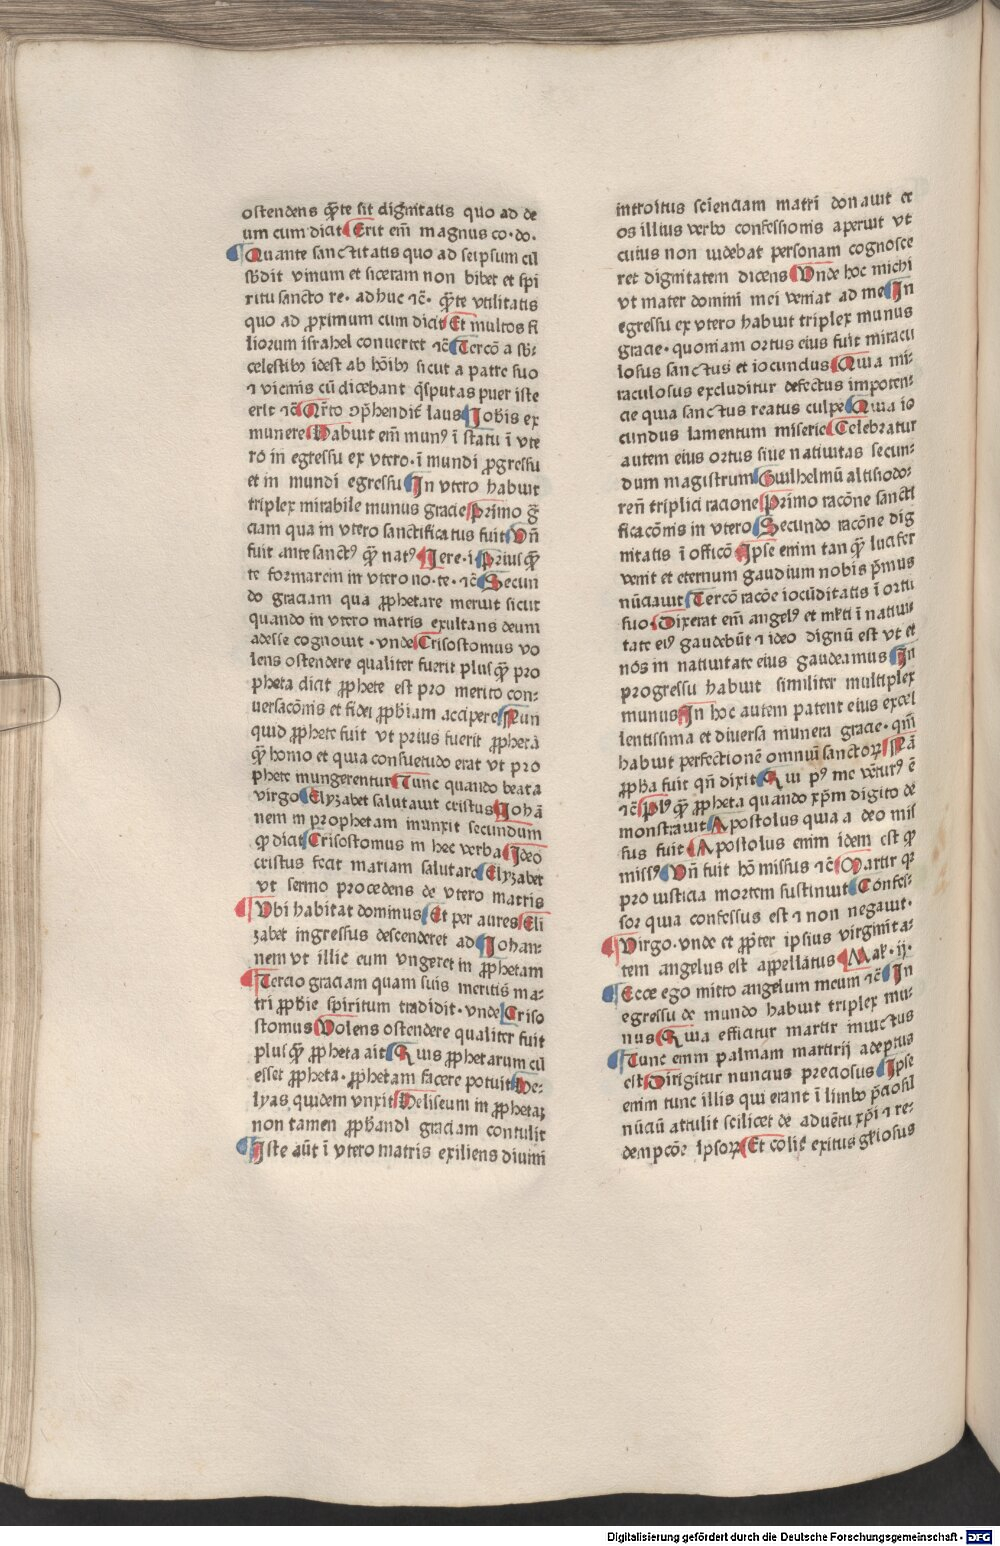 ostendens qͣnte sit dignitatis quo ad de
um cum dicit Erit em̄ magnus co·do·
Quante sanctitatis quo ad seipsum cū
sb̄dit vinum et siceram non bibet et spi
ritu sancto re· adhuc ⁊c̄· qͣnte vtilitatis
quo ad proximum cum dicit Et multos fi
liorum israhel conuertet ⁊c̄ Tercō a sb̄:
celestibꝫ idest ab hōibꝫ sicut a patre suo
⁊ vicinis cū dicebant qͥsputas puer iste
erit ⁊c̄ Qͣrto ꝯp̄hendit̄ laus Johis ex
munere Habuit em̄ munꝰ ī statu ī vte
ro in egressu ex vtero·ī mundi ꝓgressu
et in mundi egressu In vtero habuit
triplex mirabile munus gracie Primo gͣ
ciam qua in vtero sanctificatus fuit Vn̄
fuit ante sanctꝰ qͣ̄ natꝰ Jere·i Priusqͣ̄
te formarem in vtero no·te·⁊c̄ Secun
do graciam qua ꝓphetare meruit sicut
quando in vtero matris exultans deum
adesse cognouit·vnde Crisostomus vo
lens ostendere qualiter fuerit plusqͣ̄ pro
pheta dicit ꝓphete est pro merito con:
uersacōnis et fidei ꝓphīam accipere Nun
quid ꝓphete fuit vt prius fuerit ꝓpheta
qͣ̄ homo et quia consuetudo erat vt pro
phete inungerentur Tunc quando beata
virgo Elyzabet salutauit cristus Johā
nem in prophetam inunxit secundum
ꝙ dicit Crisostomus in hec verba Ideo
cristus fecit mariam salutare Elyzabet
vt sermo procedens de vtero matris
Vbi habitat dominus Et per aures Eli
zabet ingressus descenderet ad Johan:
nem vt illic eum vngeret in ꝓphetam
Tercio graciam quam suis meritis ma:
tri ꝓphīe spiritum tradidit·vnde Criso
stomus Volens ostendere qualiter fuit
plusqͣ̄ ꝓpheta ait Quis ꝓphetarum cū
esset ꝓpheta·ꝓphetam facere potuit He:
lyas quidem vnxit Heliseum in ꝓphetaꝫ
non tamen ꝓphandi graciam contulit
Iste aūt ī vtero matris exiliens diuini
introitus scienciam matri donauit et
os illius verbo confessionis aperuit vt
cuius non videbat personam cognosce
ret dignitatem dicens Vnde hoc michi
vt mater domini mei veniat ad me In
egressu ex vtero habuit triplex munus
gracie·quoniam ortus eius fuit miracu
losus sanctus et iocundus Quia mi:
raculosus excluditur defectus impoten:
cie quia sanctus reatus culpe Quia io
cundus lamentum miserie Celebratur
autem eius ortus siue natiuitas secun:
dum magistrum Guilhelmū altisiodo:
ren̄ triplici racione Primo racōne sancti
ficacōnis in vtero Secundo racōne dig
nitatis ī officō Ipse enim tanqͣ̄ lucifer
venit et eternum gaudium nobis pͥmus
nūciauit Tercō racōe iocūditatis ī ortu
suo·Dixerat em̄ angelꝰ et ml̄ti ī natiui
tate eiꝰ gaudebūt ⁊ ideo dignū est vt et
nos in natiuitate eius gaudeamus In
progressu habuit similiter multiplex
munus In hoc autem patent eius excel
lentissima et diuersa munera gracie·qm̄
habuit perfectionē omnium sanctoꝝ Nā
ꝓpha fuit qn̄ dixit Qui pꝰ me vētur̄ꝰ ē
⁊c̄ Plꝰ qͣ̄ ꝓpheta quando xp̄m digito de
monstrauit Apostolus quia a deo mis
sus fuit Apostolus enim idem est ꝙ
missꝰ Vn̄ fuit hō missus ⁊c̄ Martir qꝛ
pro iusticia mortem sustinuit Confes:
sor quia confessus est ⁊ non negauit·
Virgo·vnde et ꝓpter ipsius virginita:
tem angelus est appellatus Mal·ij·
Ecce ego mitto angelum meum ⁊c̄ In
egressu de mundo habuit triplex mu:
nus Quia efficitur martir inuictus
Tunc enim palmam martirij adeptus
est Dirigitur nuncius preciosus Ipse
enim tunc illis qui erant ī limbo p̄ciosū
nūciū attulit scilicet de aduētu xp̄i ⁊ re:
dempcōe ipsoꝝ Et colit̄ exitus gl̄iosus
Digitalisierung gefördert durch die Deutsche Forschungsgemeinschaft · DFG